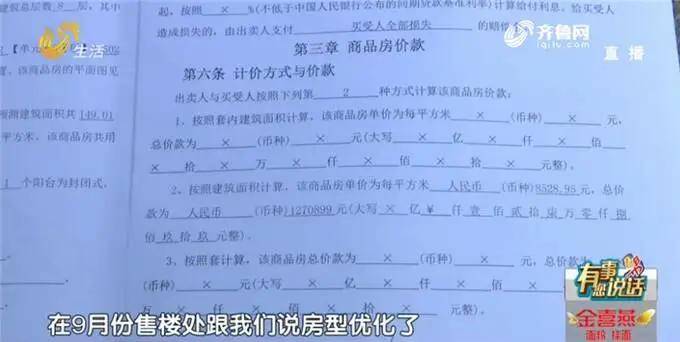 建筑总层数 8 层,其中
起,按照 × %(不低于中国人民银行公布的同期贷款基准利率)计算给付利息。给买受人
造成损失的,由出卖人支付 买受人全部损失 的赔偿
齐鲁网
iqilu.com
生活
直播
【单元
502
号。该商品房的平面图见
第三章 商品房价款
第六条 计价方式与价款
出卖人与买受人按照下列第 2 种方式计算该商品房价款:
预测建筑面积共 149.01
平方米,该商品房共用
1、按照套内建筑面积计算,该商品房单价为每平方米 × (币种) × 元,
总价款为 × (币种) × 元(大写 × 亿 × 仟 × 佰
× 拾 × 万 × 仟 × 佰 × 拾 × 元整)。
个阳台为封闭式,
2、按照建筑面积计算,该商品房单价为每平方米 人民币 (币种)8528.95 元,总价
款为 人民币 (币种)1270899 元(大写 × 亿 ¥ 仟 壹 佰 贰 拾 柒 万 零 仟 捌
佰 玖 拾 玖 元整)。
3、按照套计算,该商品房总价款为 × (币种) × 元,总价款为
(币种) × 元(大写 × 亿 × 仟 × 佰 ×
万 × 仟 × 佰 × 拾 × 元整)。
有事您说话
金喜燕
面粉 挂面
在9月份售楼处跟我们说房型优化了